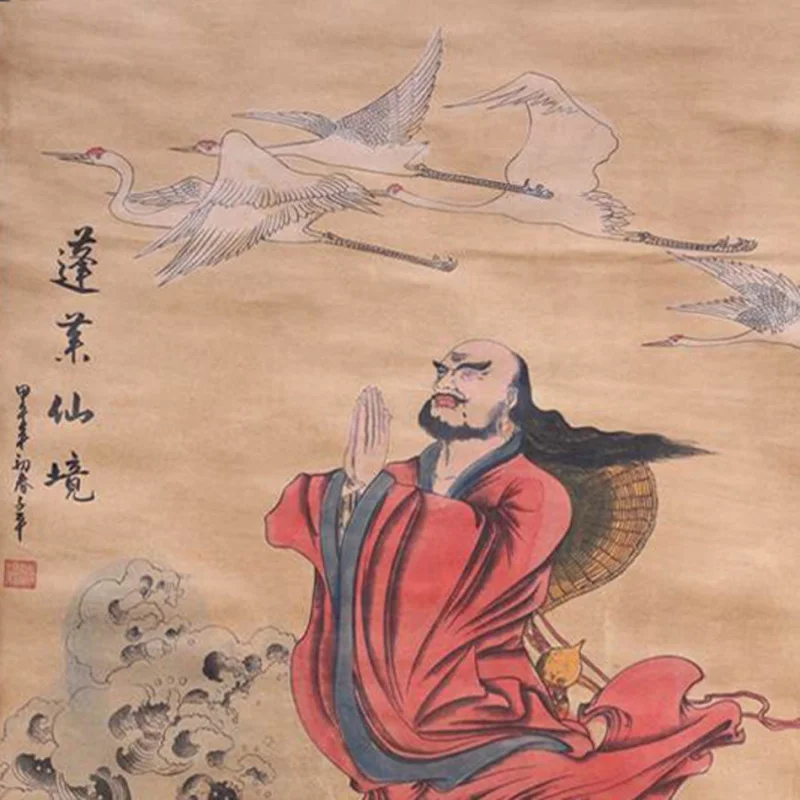 蓬莱仙境
甲午年初春